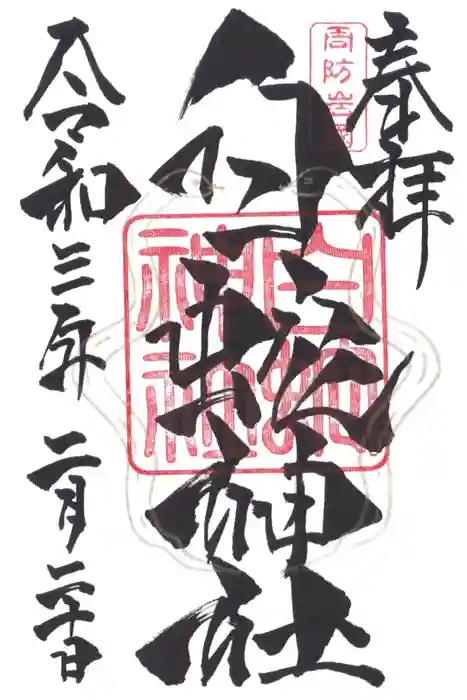 奉拝
周防岩国
白蛇神社
白蛇神社
令和三年二月二十日